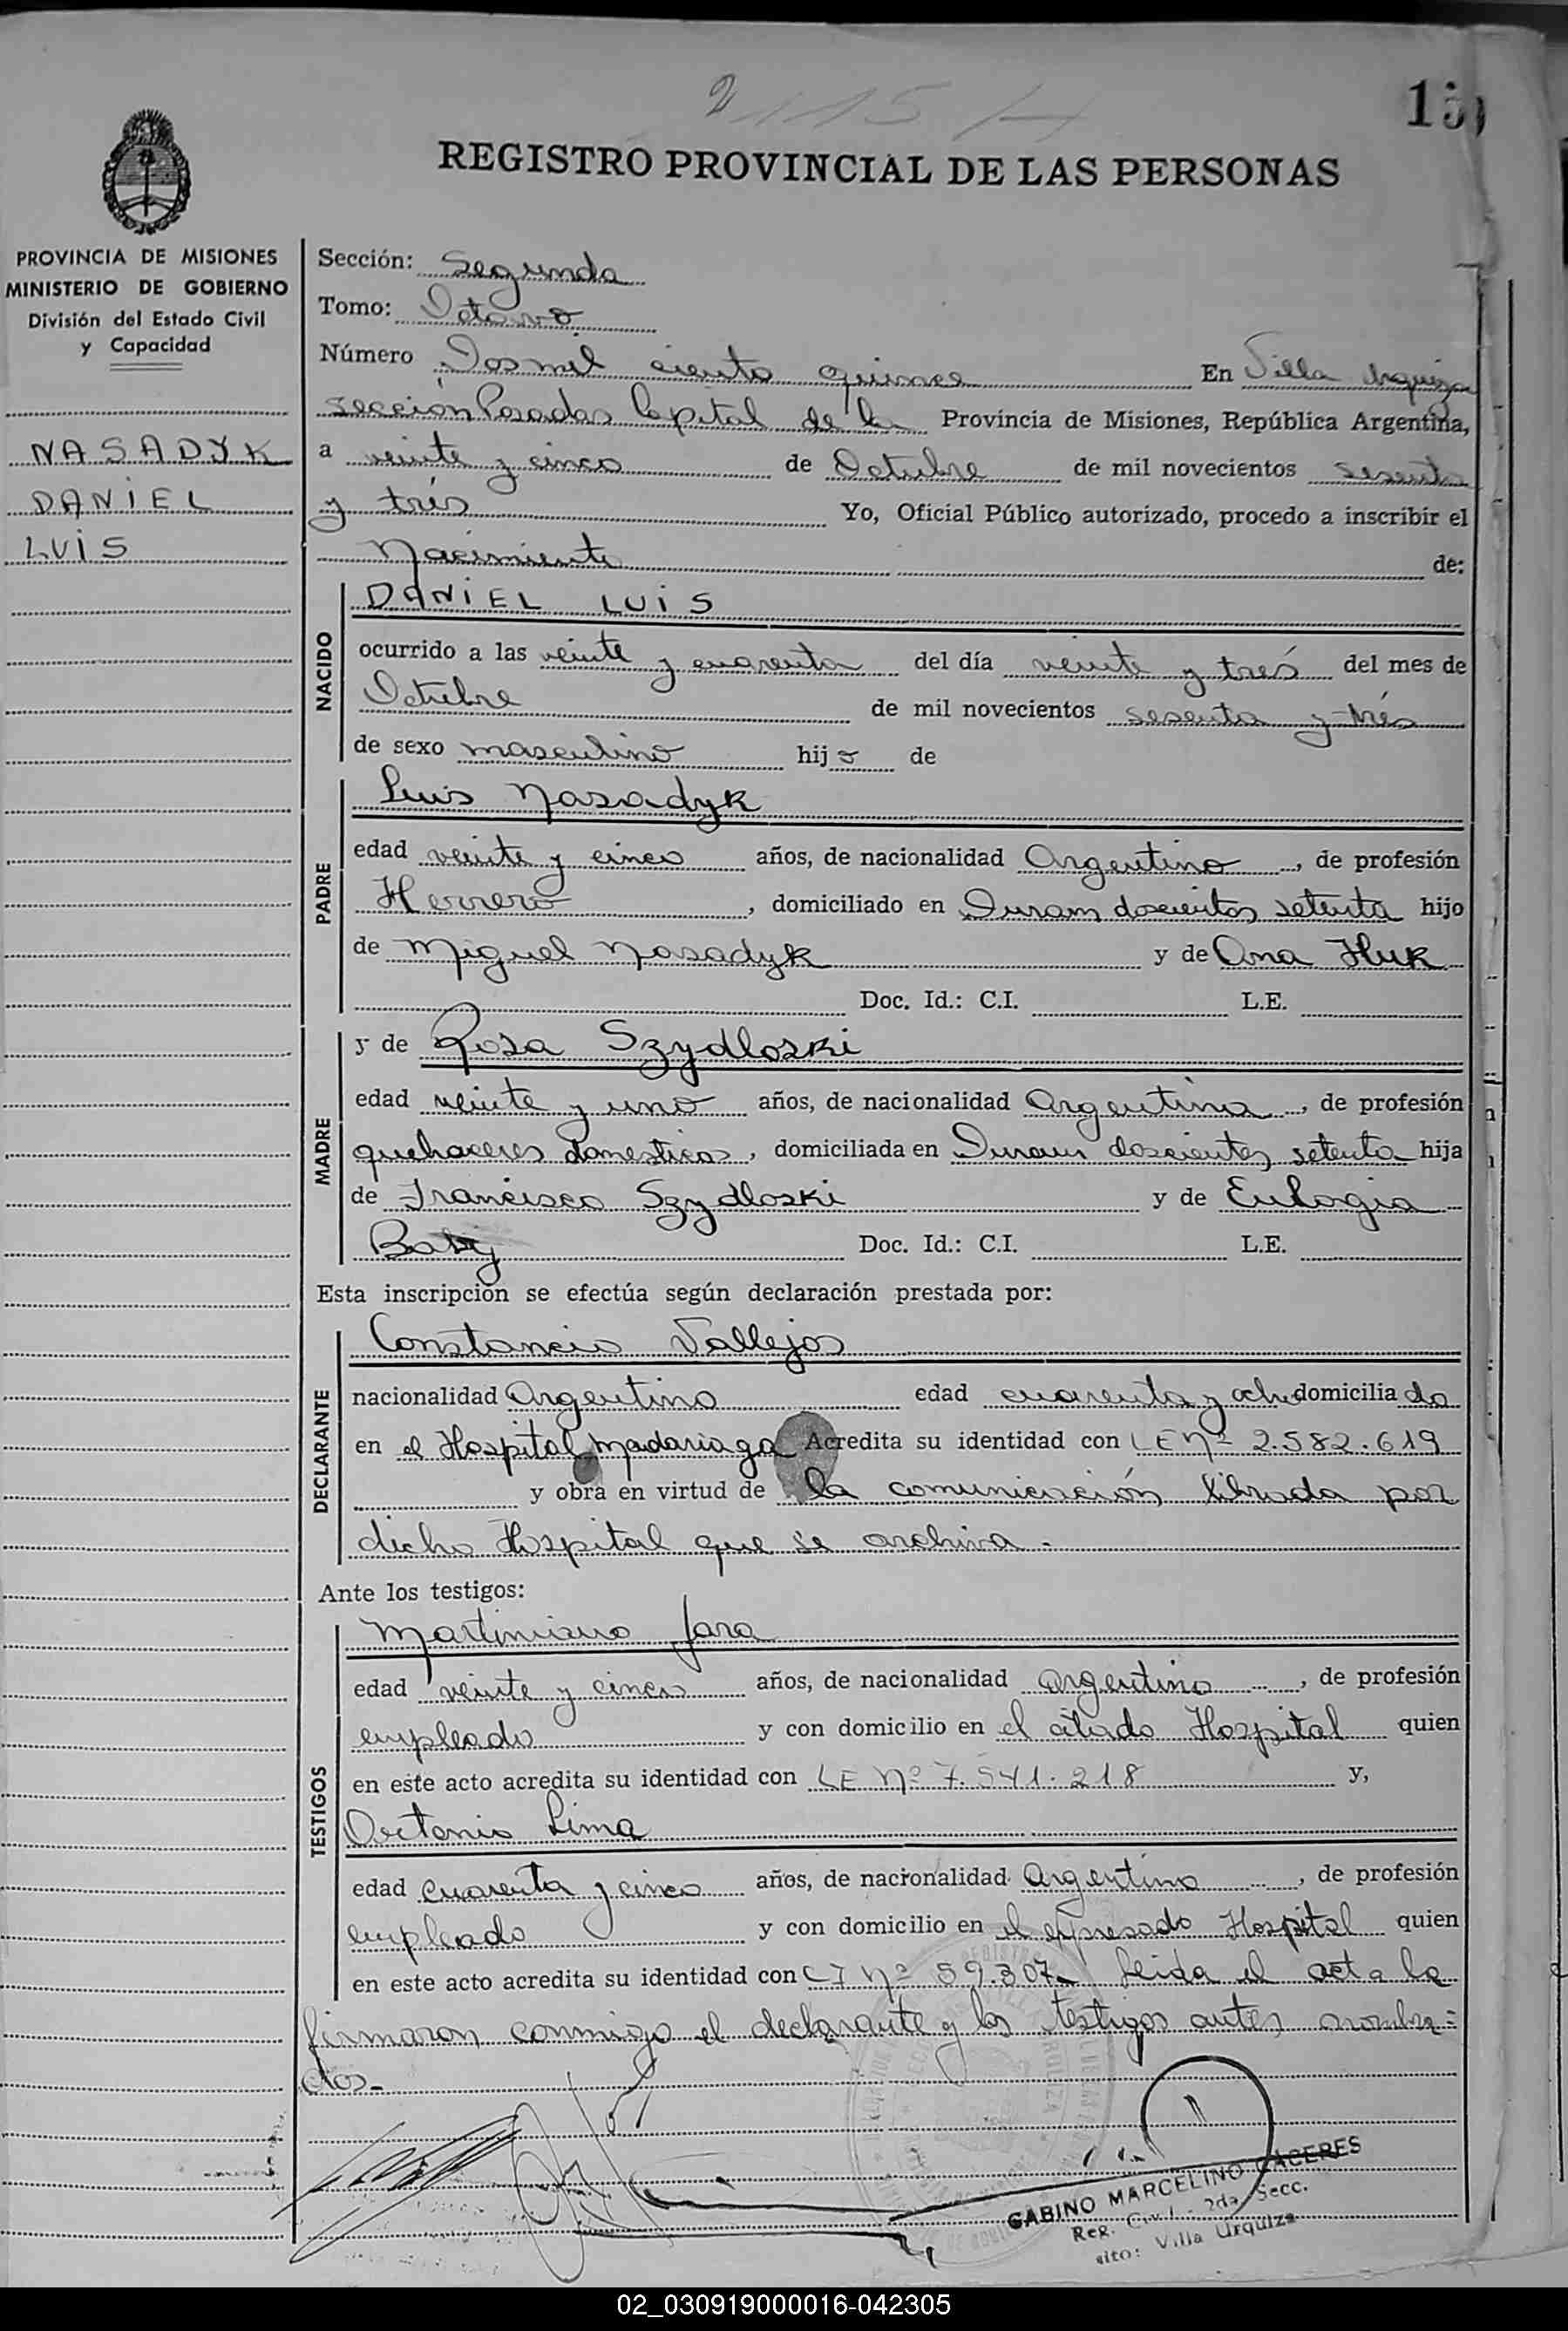 2115
REGISTRO PROVINCIAL DE LAS PERSONAS
PROVINCIA DE MISIONES
MINISTERIO DE GOBIERNO
División del Estado Civil
y Capacidad
NASADYK
DANIEL
LUIS
Sección: Segunda
Tomo: Octavo
Número Dos mil ciento quince En Villa Urquiza
sección Posadas Capital de la Provincia de Misiones, República Argentina,
a veinte y cinco de Octubre de mil novecientos sesenta
y trés Yo, Oficial Público autorizado, procedo a inscribir el
Nacimiento de:
NACIDO
DANIEL LUIS
ocurrido a las veinte y cuarenta del día veinte y trés del mes de
Octubre de mil novecientos sesenta y trés
de sexo masculino hijo de
PADRE
Luis Nasadyk
edad veinte y cinco años, de nacionalidad Argentino, de profesión
Herrero, domiciliado en Duram doscientos setenta hijo
de Miguel Nasadyk y de Ana Huk
Doc. Id.: C.I. L.E.
MADRE
y de Rosa Szydloski
edad veinte y uno años, de nacionalidad Argentina, de profesión
quehaceres domesticos, domiciliada en Duram doscientos setenta hija
de Francisco Szydloski y de Eulogia
Baby Doc. Id.: C.I. L.E.
Esta inscripción se efectúa según declaración prestada por:
DECLARANTE
Constancio Vallejos
nacionalidad Argentino edad cuarenta y ocho domiciliado
en el Hospital Madariaga Acredita su identidad con LE Nº 2.582.619
y obra en virtud de la comunicación librada por
dicho Hospital que se archiva.
Ante los testigos:
TESTIGOS
Martiniano Jara
edad veinte y cinco años, de nacionalidad argentino, de profesión
empleado y con domicilio en el citado Hospital quien
en este acto acredita su identidad con LE Nº 7.541.218 y,
Octonio Lima
edad cuarenta y cinco años, de nacionalidad Argentino, de profesión
empleado y con domicilio en el expresado Hospital quien
en este acto acredita su identidad con CI Nº 59.307- Leida el acta la
firmaron conmigo el declarante y los testigos antes nombra=
dos-
GABINO MARCELINO CACERES
Reg. Civil - 2da. Secc.
sito: Villa Urquiza
02_030919000016-042305